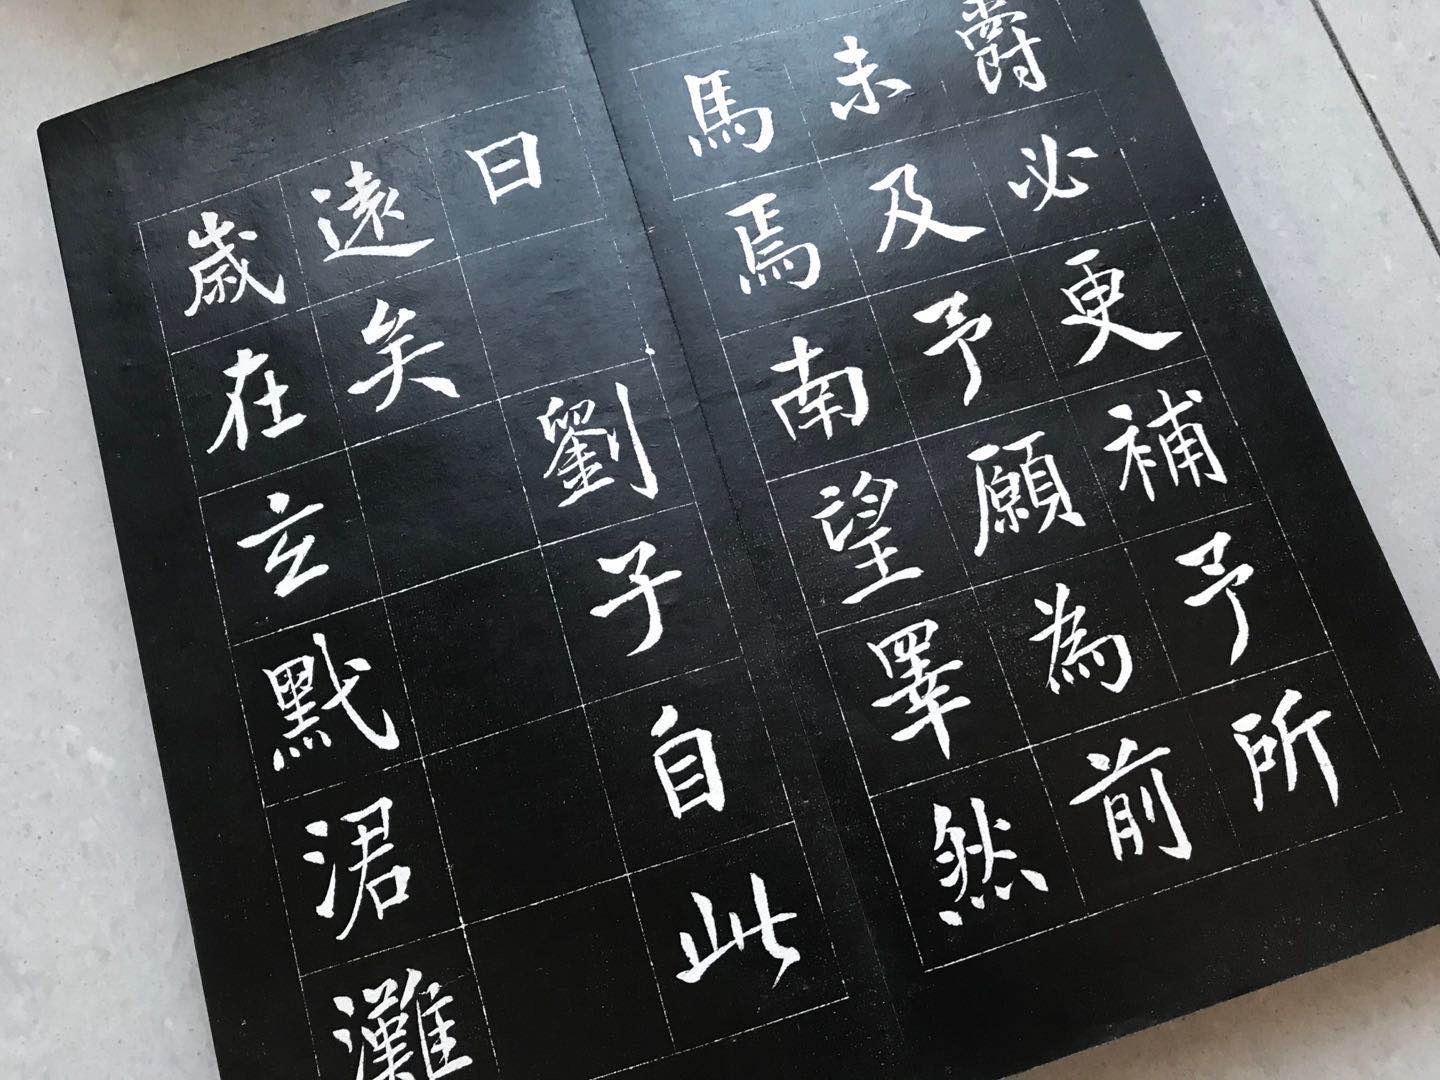 爵必更補予所
未及予願為前
馬焉南望睪然
曰 劉子自此
遠矣
歲在玄黓涒灘